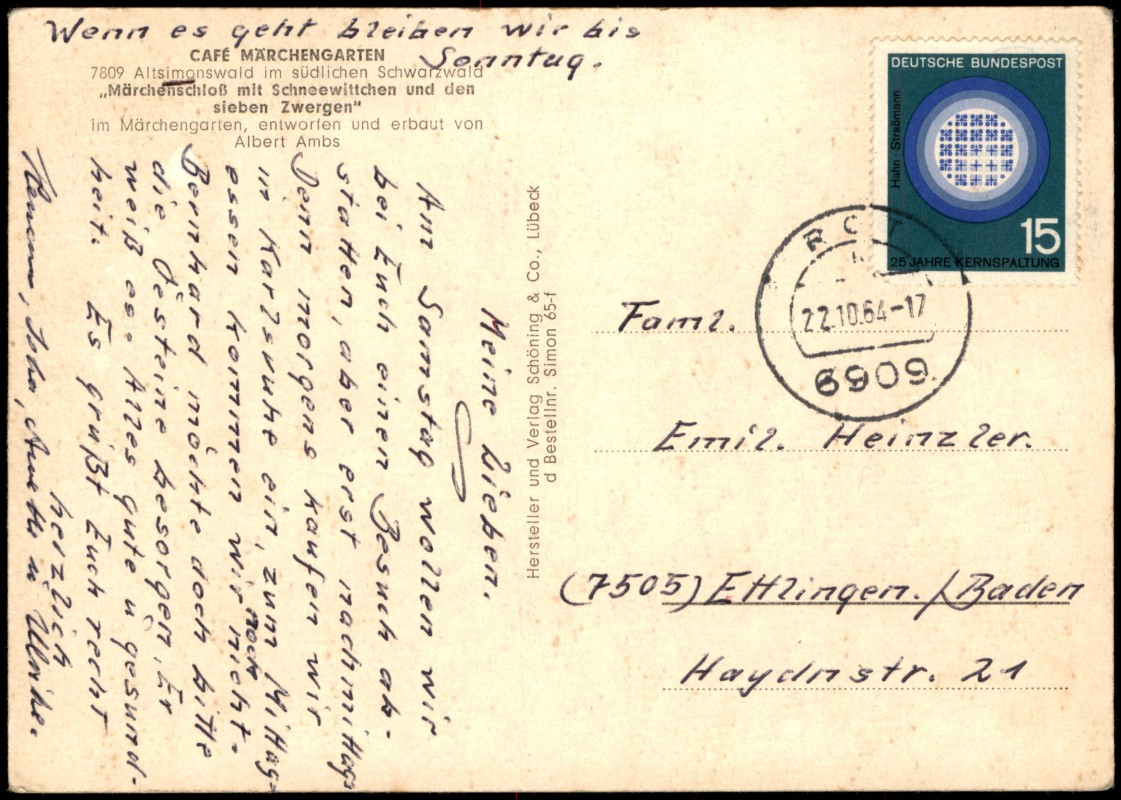 Wenn es geht bleiben wir bis
Sonntag.
CAFÉ MÄRCHENGARTEN
7809 Altsimonswald im südlichen Schwarzwald
„Märchenschloß mit Schneewittchen und den
sieben Zwergen"
im Märchengarten, entworfen und erbaut von
Albert Ambs
Meine Lieben.
Am Samstag wollen wir
bei Euch einen Besuch ab-
statten, aber erst nachmittags
Denn morgens kaufen wir
in Karlsruhe ein, zum Mittag-
essen kommen wir noch nicht.
Bernhard möchte doch bitte
die Steine besorgen. Er
weiß es. Alles gute u gesund-
heit. Es grüßt Euch recht
herzlich
u Ulrike.
Hersteller und Verlag Schöning & Co., Lübeck
d Bestellnr. Simon 65-f
DEUTSCHE BUNDESPOST
Hahn Straßmann
15
25 JAHRE KERNSPALTUNG
22.10.64-17
6069
Faml.
Emil. Heinzler.
(7505) Ettlingen./Baden
Haydnstr. 21